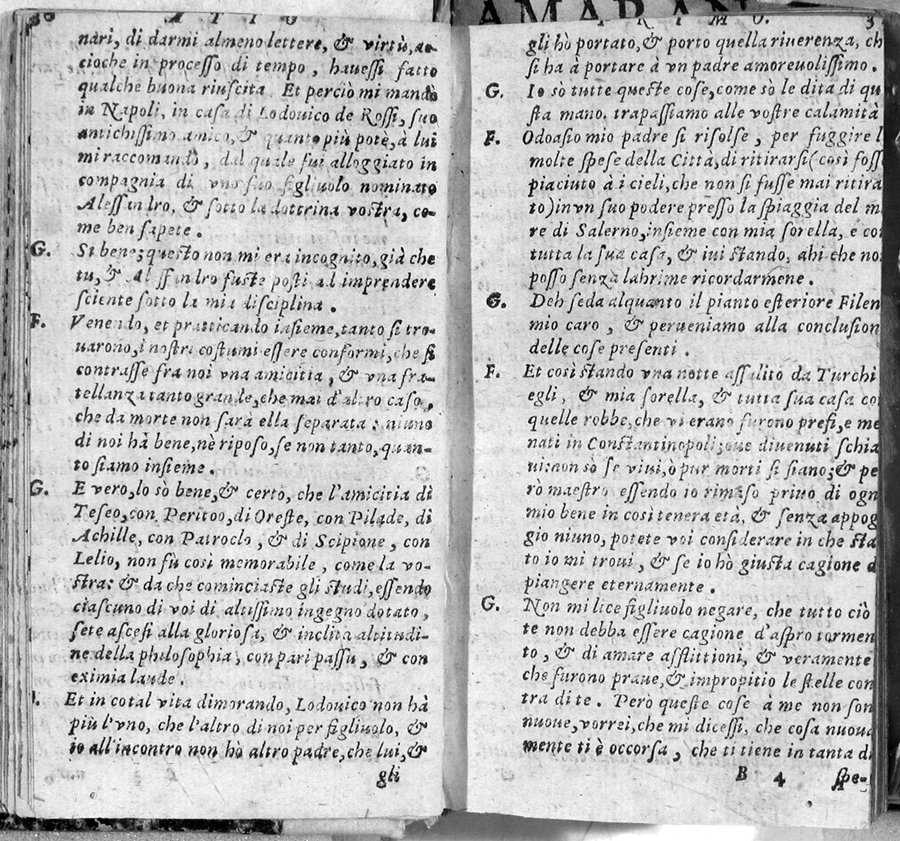 ATTO
nari, di darmi almeno lettere, & virtù, ac-
cioche in processo di tempo, havessi fatto
qualche buona riuscita. Et perciò mi mandò
in Napoli, in casa di Lodouico de Rossi, suo
antichissimo amico, & quanto più potè, à lui
mi raccomandò, dal quale fui alloggiato in
compagnia di vno suo figliuolo nominato
Alessandro, & sotto la dottrina vostra, co-
me ben sapete.
G. Sì bene; questo non mi era incognito, già che
tu, & Alessandro fuste posti ad imprendere
sciente sotto la mia disciplina.
F. Venendo, et pratticando insieme, tanto si tro-
uarono, i nostri costumi essere conformi, che si
contrasse fra noi vna amicitia, & vna fra-
tellanza tanto grande, che mai d'altro caso,
che da morte non sarà ella separata: niuno
di noi hà bene, nè riposo, se non tanto, quan-
to siamo insieme.
G. E vero, lo sò bene, & certo, che l'amicitia di
Teseo, con Peritoo, di Oreste, con Pilade, di
Achille, con Patroclo, & di Scipione, con
Lelio, non fù così memorabile, come la vo-
stra: & da che cominciaste gli studi, essendo
ciascuno di voi di altissimo ingegno dotato,
sete ascesi alla gloriosa, & inclita altitudi-
ne della philosophia, con pari passu, & con
eximia laude.
Et in cotal vita dimorando, Lodouico non hà
più l'vno, che l'altro di noi per figliuolo, &
io all'incontro non hò altro padre, che lui, &
gli
AMARANO
PRIMO.
3
gli hò portato, & porto quella riuerenza, ch
si ha à portare à vn padre amoreuolissimo.
G. Io sò tutte queste cose, come sò le dita di qu
sta mano, trapassiamo alle vostre calamità
F. Odoasio mio padre si risolse, per fuggire l
molte spese della Città, di ritirarsi (così foss
piaciuto à i cieli, che non si fusse mai ritira
to) in vn suo podere presso la spiaggia del m
re di Salerno, insieme con mia sorella, e con
tutta la sua casa, & iui stando: ahi che no
posso senza lahrime ricordarmene.
G. Deh seda alquanto il pianto esteriore Filen
mio caro, & perueniamo alla conclusion
delle cose presenti.
F. Et così stando vna notte assalito da Turchi
egli, & mia sorella, & tutta sua casa co
quelle robbe, che vi erano furono presi, e me
nati in Constantinopoli; oue diuenuti schia
ui: non sò se viui, ò pur morti si siano; & pe
rò maestro essendo io rimaso priuo di ogn
mio bene in così tenera età, & senza appog
gio niuno, potete voi considerare in che sta
to io mi troui, & se io hò giusta cagione d
piangere eternamente.
G. Non mi lice figliuolo negare, che tutto ciò
te non debba essere cagione d'aspro tormen
to, & di amare afflittioni, & veramente
che furono praue, & impropitio le stelle con
tra di te. Però queste cose à me non son
nuoue, vorrei, che mi dicessi, che cosa nuoua
mente ti è occorsa, che ti tiene in tanta di
B 4 spe-